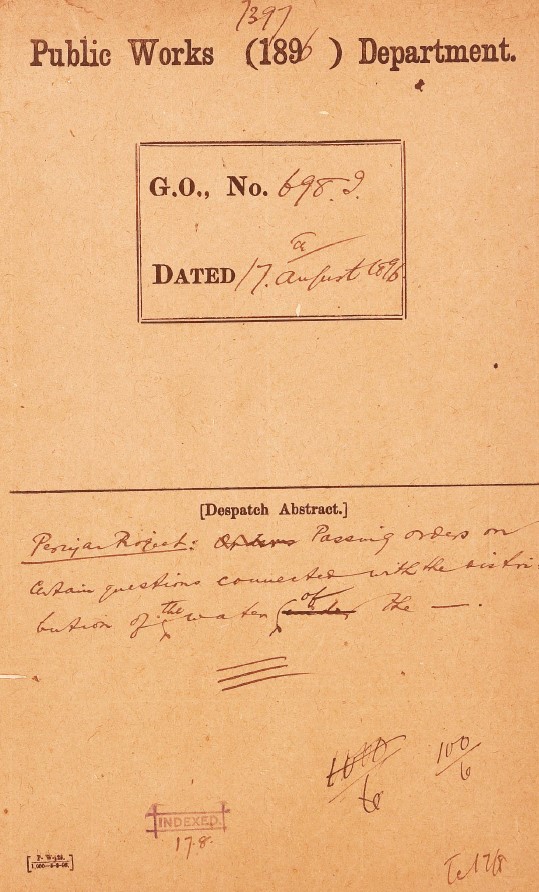 1397
Public Works (1896) Department.
G.O., No. 698. I.
DATED 17. August 1896.
[Despatch Abstract.]
Periyar Project: Orders Passing orders on
certain questions connected with the distri-
bution of the water under of the —.
100/6
INDEXED.
17.8.
17/8